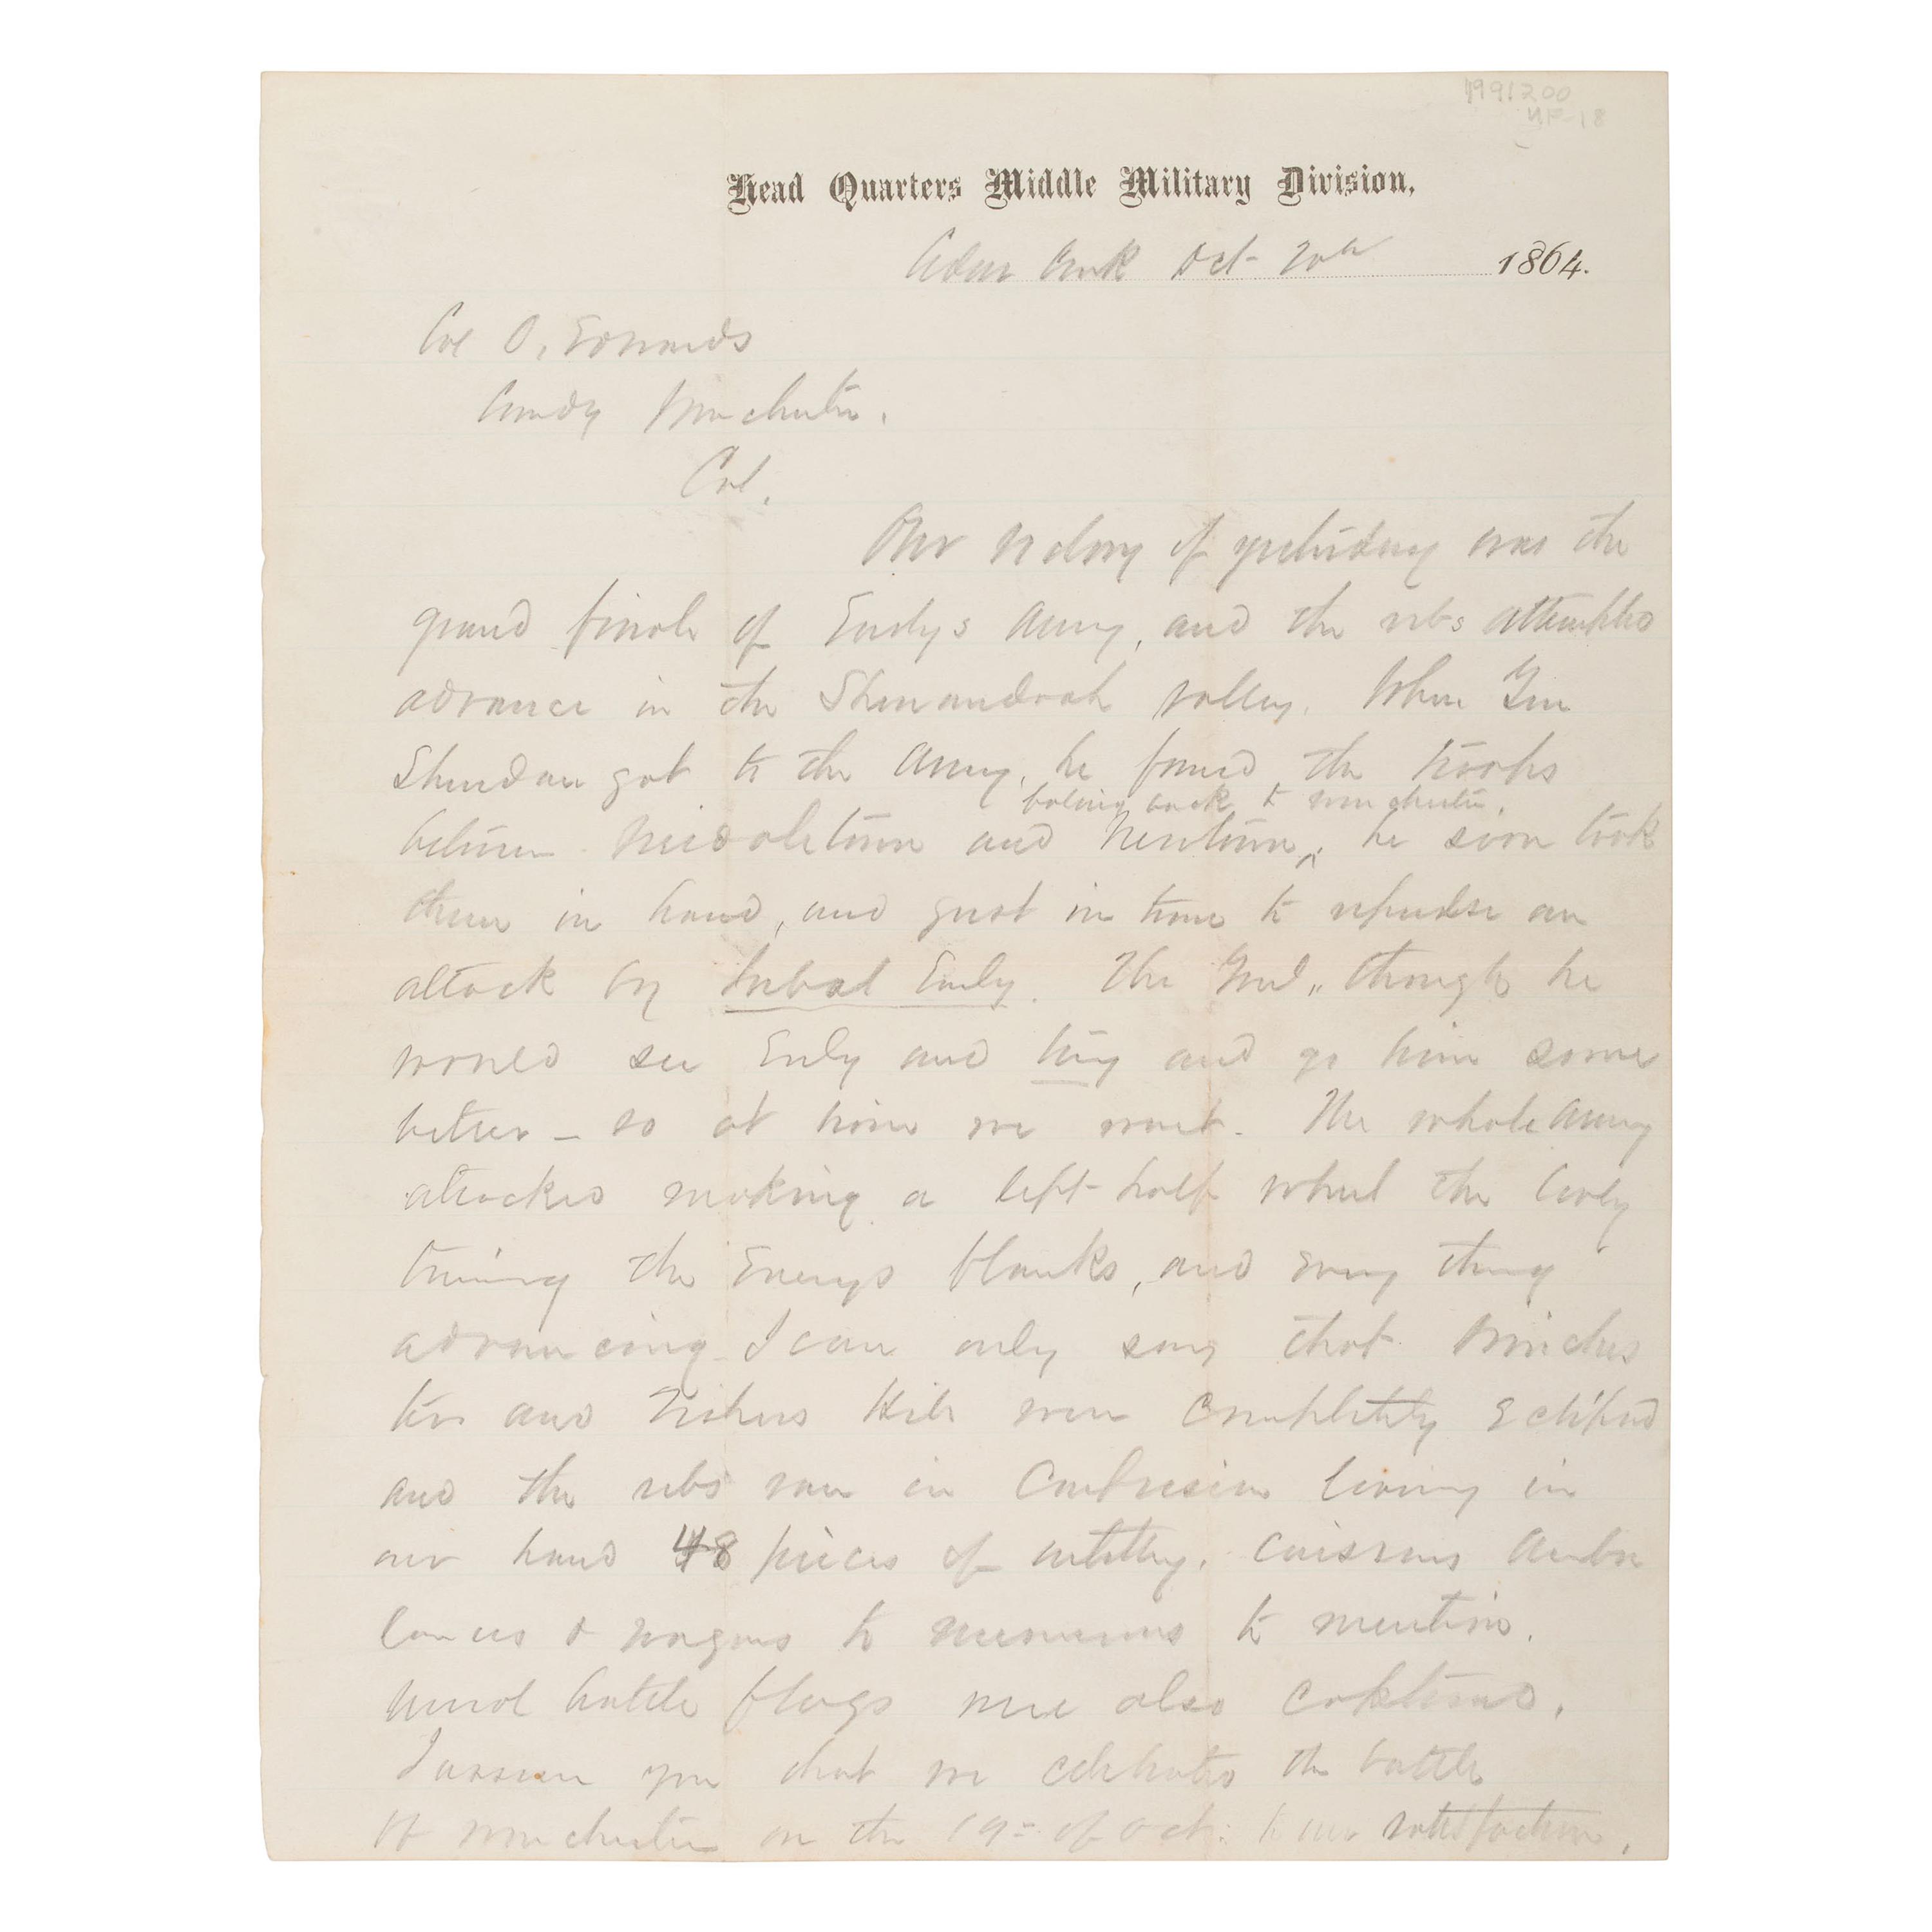 1991200
Head Quarters Middle Military Division,
Cedar Creek Oct 20th 1864.
Col O. Edwards
Comdg Winchester.
Col.
Our victory of yesterday was the
grand finale of Earlys army, and the rebs attempted
advance in the Shenandoah valley. When Gen
Sheridan got to the army, he found the troops
falling back to Winchester.
between Middletown and Newtown, he soon took
them in hand, and just in time to repulse an
attack by Jubal Early. The Genl, thought he
would see Early and and go him some
better - so at him we went. The whole army
attacked making a left half wheel the Cavly
turning the Enemys flanks, and every thing
advancing I can only say that Winches
ter and Fishers Hill were completely Eclipsed
and the rebs ran in Confusion leaving in
our hand 48 pieces of artillery, Caissons Ambu
lances & wagons to numerous to mention.
battle flags were also captured.
I assure you that we celebrated the battle
of Winchester on the 19= of Oct: to our satisfaction.